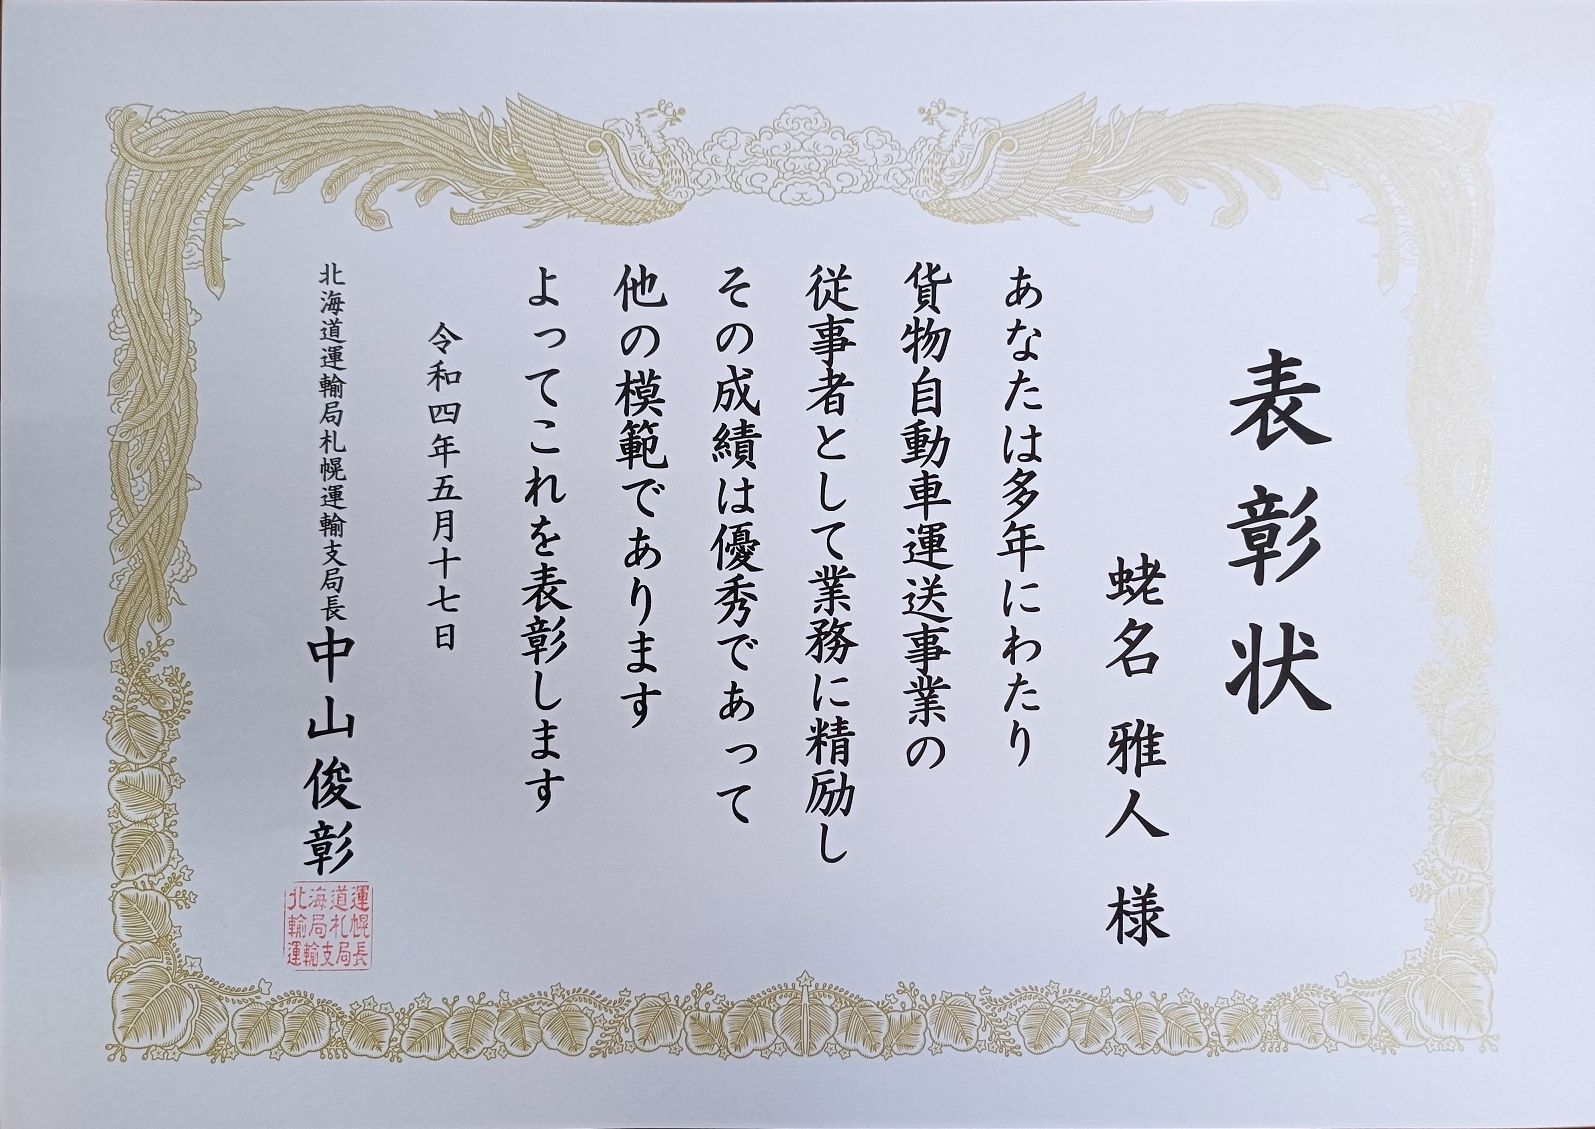 表彰状
蛯名 雅人 様
あなたは多年にわたり
貨物自動車運送事業の
従事者として業務に精励し
その成績は優秀であって
他の模範であります
よってこれを表彰します
令和四年五月十七日
北海道運輸局札幌運輸支局長 中山俊彰
北海道運
輸局札幌
運輸支局長